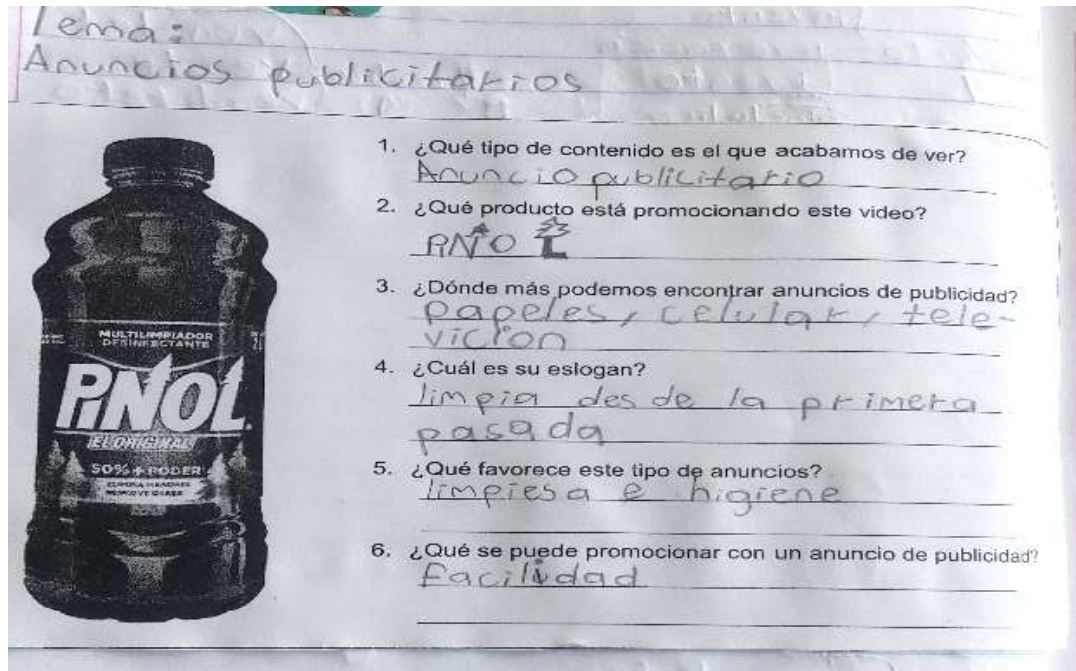 Tema:
Anuncios publicitarios
MULTILIMPIADOR
DESINFECTANTE
PINOL
EL ORIGINAL
50% + PODER
1. ¿Qué tipo de contenido es el que acabamos de ver?
Anuncio publicitario
2. ¿Qué producto está promocionando este video?
PINOL
3. ¿Dónde más podemos encontrar anuncios de publicidad?
papeles, celular, tele-
vicion
4. ¿Cuál es su eslogan?
limpia des de la primera
pasada
5. ¿Qué favorece este tipo de anuncios?
limpiesa e higiene
6. ¿Qué se puede promocionar con un anuncio de publicidad?
Facilidad